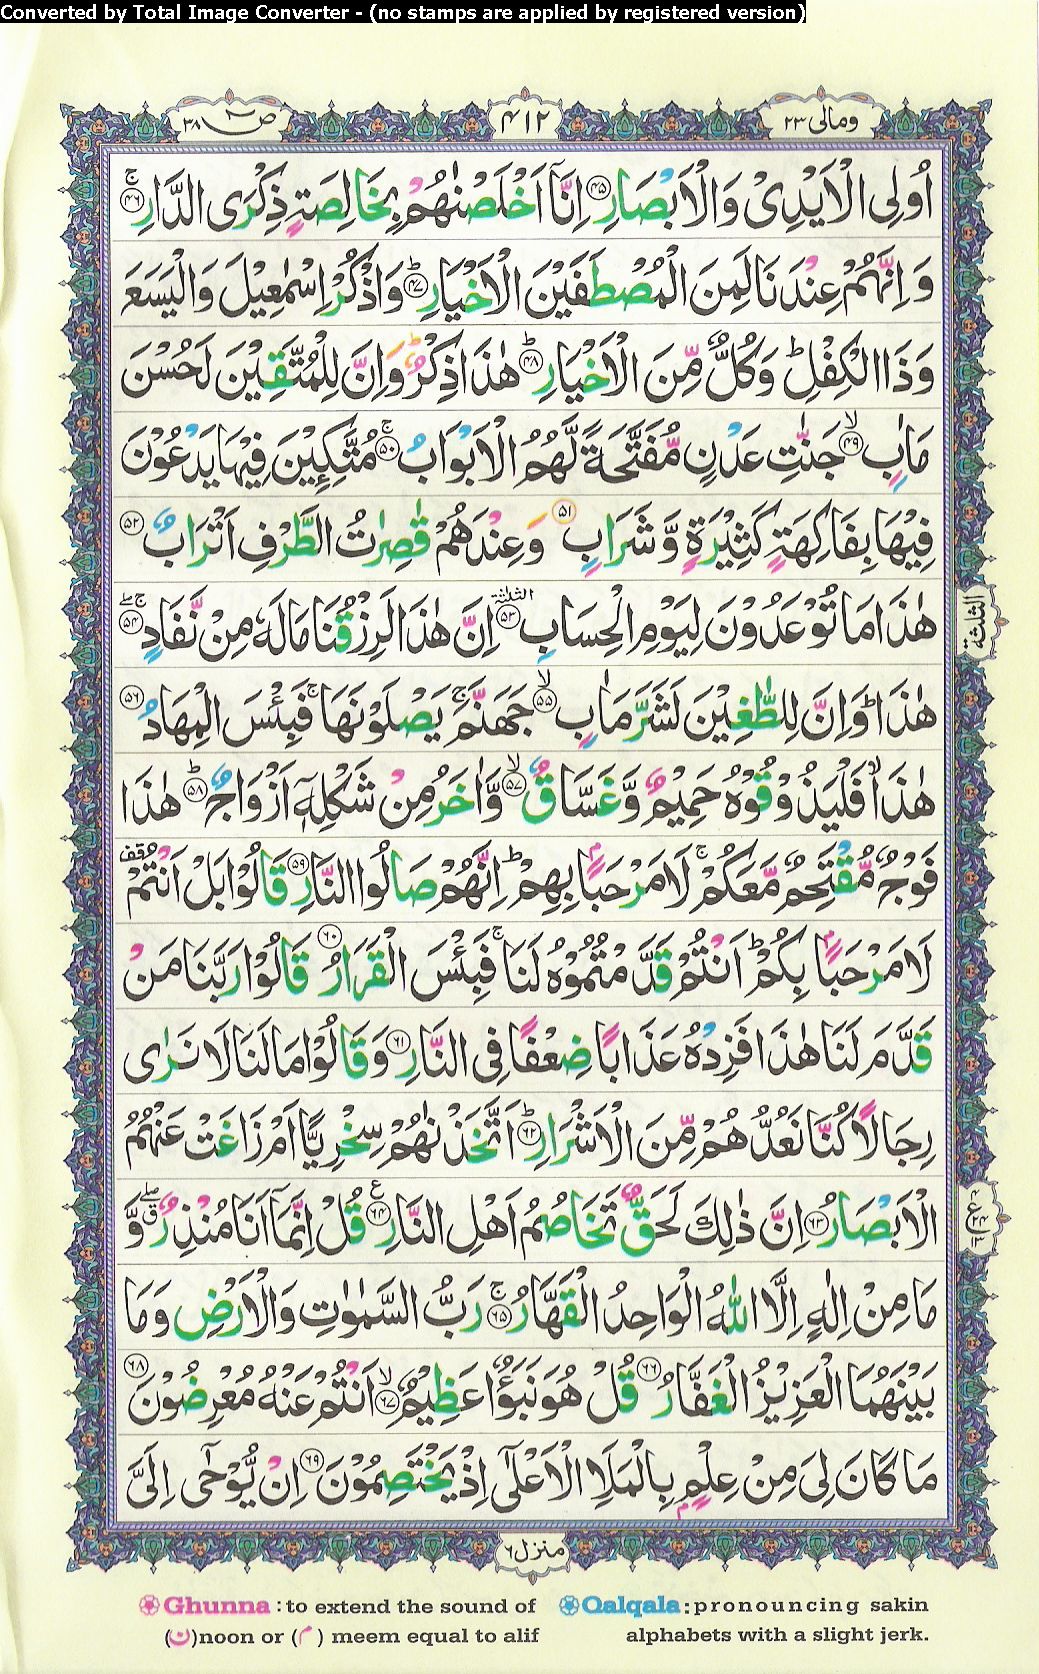 Converted by Total Image Converter - (no stamps are applied by registered version)
ومالی ۲۳
۴۱۲
ص ۳۸
اُولِی الْاَیْدِیْ وَالْاَبْصَارِ ۴۵ اِنَّاۤ اَخْلَصْنٰهُمْ بِخَالِصَةٍ ذِكْرَی الدَّارِ ۴۶ ج
وَ اِنَّهُمْ عِنْدَنَا لَمِنَ الْمُصْطَفَیْنَ الْاَخْیَارِ ۴۷ ط وَاذْكُرْ اِسْمٰعِیْلَ وَالْیَسَعَ
وَذَا الْكِفْلِ ط وَكُلٌّ مِّنَ الْاَخْیَارِ ۴۸ ط هٰذَا ذِكْرٌ ط وَاِنَّ لِلْمُتَّقِیْنَ لَحُسْنَ
مَاٰبٍ ۴۹ لا جَنّٰتِ عَدْنٍ مُّفَتَّحَةً لَّهُمُ الْاَبْوَابُ ۵۰ ج مُتَّكِـِٕیْنَ فِیْهَا یَدْعُوْنَ
فِیْهَا بِفَاكِهَةٍ كَثِیْرَةٍ وَّ شَرَابٍ ۵۱ وَعِنْدَهُمْ قٰصِرٰتُ الطَّرْفِ اَتْرَابٌ ۵۲
هٰذَا مَا تُوْعَدُوْنَ لِیَوْمِ الْحِسَابِ ۵۳ الثلثة اِنَّ هٰذَا لَرِزْقُنَا مَا لَهٗ مِنْ نَّفَادٍ ۵۴ ج صلے
هٰذَا ط وَاِنَّ لِلطّٰغِیْنَ لَشَرَّ مَاٰبٍ ۵۵ لا جَهَنَّمَ ج یَصْلَوْنَهَا ج فَبِئْسَ الْمِهَادُ ۵۶
هٰذَا لا فَلْیَذُوْقُوْهُ حَمِیْمٌ وَّ غَسَّاقٌ ۵۷ لا وَّاٰخَرُ مِنْ شَكْلِهٖۤ اَزْوَاجٌ ۵۸ ط هٰذَا
فَوْجٌ مُّقْتَحِمٌ مَّعَكُمْ ج لَا مَرْحَبًۢا بِهِمْ ط اِنَّهُمْ صَالُوا النَّارِ ۵۹ قَالُوْا بَلْ اَنْتُمْ قف
لَا مَرْحَبًۢا بِكُمْ ط اَنْتُمْ قَدَّمْتُمُوْهُ لَنَا ج فَبِئْسَ الْقَرَارُ ۶۰ قَالُوْا رَبَّنَا مَنْ
قَدَّمَ لَنَا هٰذَا فَزِدْهُ عَذَابًا ضِعْفًا فِی النَّارِ ۶۱ وَقَالُوْا مَا لَنَا لَا نَرٰی
رِجَالًا كُنَّا نَعُدُّهُمْ مِّنَ الْاَشْرَارِ ۶۲ ط اَتَّخَذْنٰهُمْ سِخْرِیًّا اَمْ زَاغَتْ عَنْهُمُ
الْاَبْصَارُ ۶۳ اِنَّ ذٰلِكَ لَحَقٌّ تَخَاصُمُ اَهْلِ النَّارِ ۶۴ ع قُلْ اِنَّمَاۤ اَنَا مُنْذِرٌ ق صلے وَّ
مَا مِنْ اِلٰهٍ اِلَّا اللّٰهُ الْوَاحِدُ الْقَهَّارُ ۶۵ ج رَبُّ السَّمٰوٰتِ وَالْاَرْضِ وَمَا
بَیْنَهُمَا الْعَزِیْزُ الْغَفَّارُ ۶۶ قُلْ هُوَ نَبَؤٌا عَظِیْمٌ ۶۷ لا اَنْتُمْ عَنْهُ مُعْرِضُوْنَ ۶۸
مَا كَانَ لِیَ مِنْ عِلْمٍۭ بِالْمَلَاِ الْاَعْلٰۤی اِذْ یَخْتَصِمُوْنَ ۶۹ اِنْ یُّوْحٰۤی اِلَیَّ
الثلثة
ع
منزل ۶
Ghunna : to extend the sound of (ن)noon or (م) meem equal to alif
Qalqala : pronouncing sakin alphabets with a slight jerk.